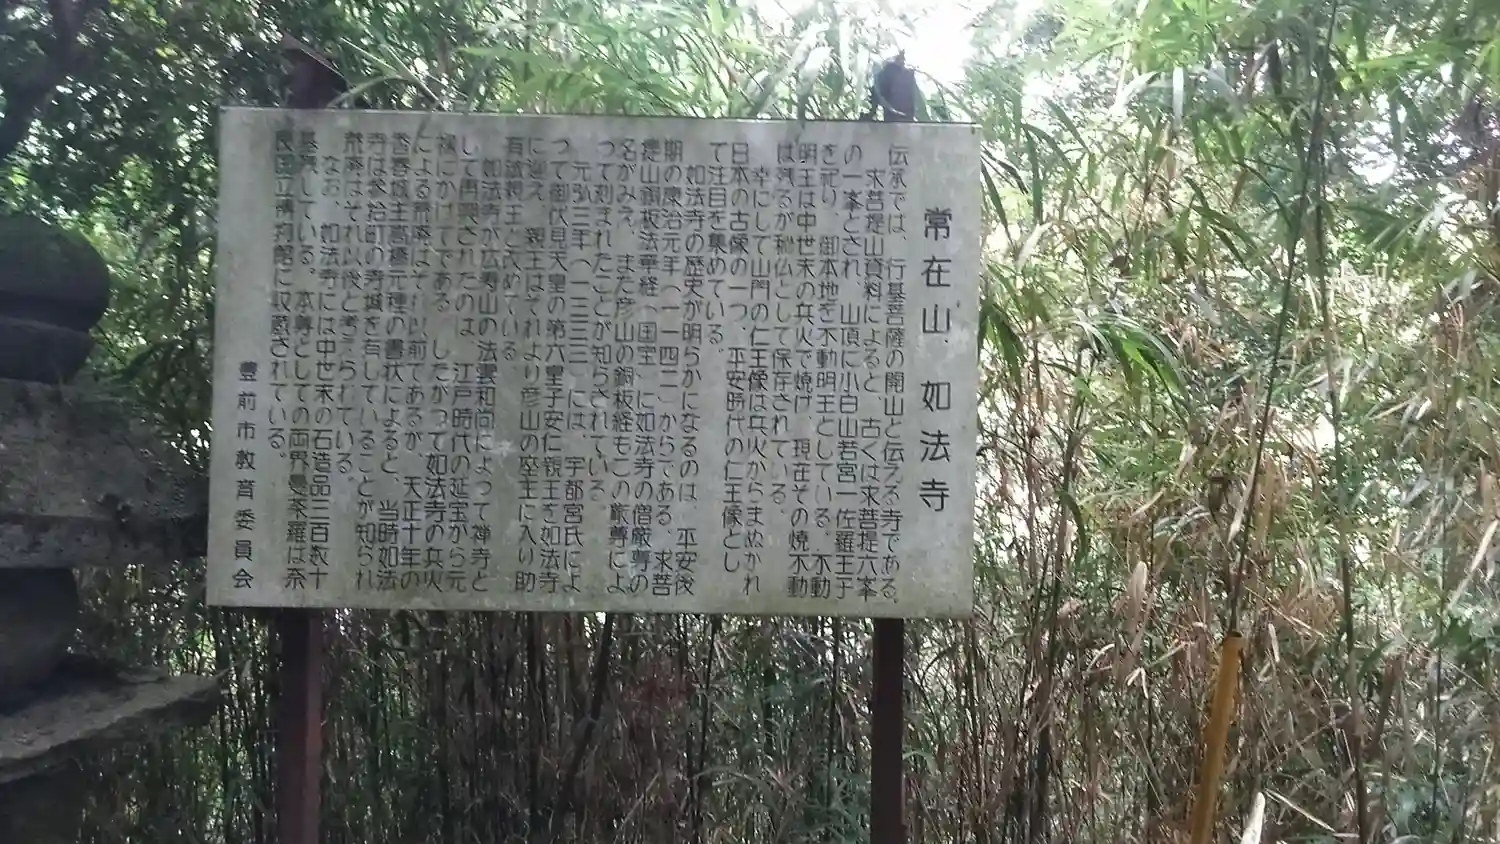 常在山 如法寺
伝承では、行基菩薩の開山と伝える寺である。
求菩提山資料によると、古くは求菩提六峯
の一峯とされ、山頂に小白山若宮一佐羅王子
を祀り、御本地を不動明王としている。不動
明王は中世末の兵火で焼け、現在その焼不動
は残るが秘仏として保存されている。
幸にして山門の仁王像は兵火からまぬかれ
日本の古像の一つ、平安時代の仁王像とし
て注目を集めている。
如法寺の歴史が明らかになるのは、平安後
期の康治元年(一一四二)からである。求菩
提山銅板法華経(国宝)に如法寺の僧厳尊の
名がみえ、また彦山の銅板経もこの厳尊によ
って刻まれたことが知らされている。
元弘三年(一三三三)には、宇都宮氏によ
って御伏見天皇の第六皇子安仁親王を如法寺
に迎え、親王はそれより彦山の座主に入り助
有法親王と改めている
如法寺が広寿山の法雲和尚によって禅寺と
して再興されたのは、江戸時代の延宝から元
禄にかけてである。したがって如法寺の兵火
による荒廃はそれ以前であるが、天正十年の
香春城主高橋元種の書状によると、当時如法
寺は 拾町の寺域を有していることが知られ
荒廃はそれ以後と考えられている。
なお、如法寺には中世末の石造品三百数十
基 している。本尊としての両界曼荼羅は奈
良国立博物館に収蔵されている。
豊前市教育委員会